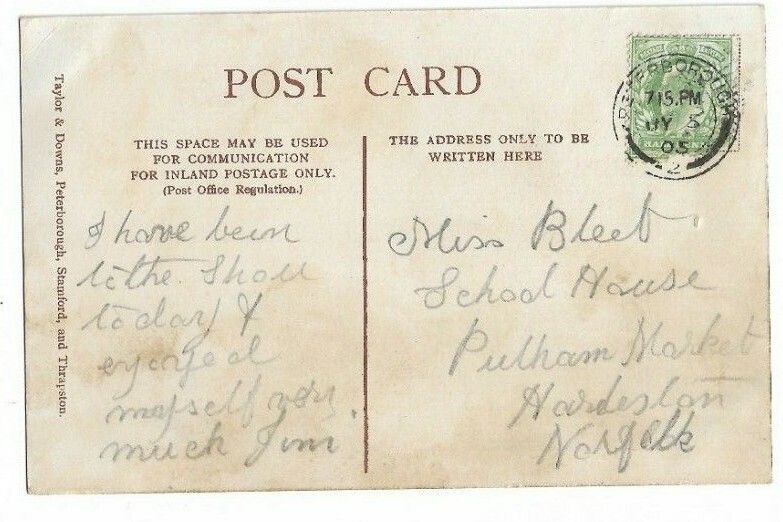 POST CARD
THIS SPACE MAY BE USED
FOR COMMUNICATION
FOR INLAND POSTAGE ONLY.
(Post Office Regulation.)
THE ADDRESS ONLY TO BE
WRITTEN HERE
PETERBOROUGH
7 15. PM
JY 3
05
2
Taylor & Downs, Peterborough, Stamford, and Thrapston.
I have been
to the Show
today &
enjoyed
myself very
much Jim
Miss Bleet
School House
Pulham Market
Harleston
Norfolk